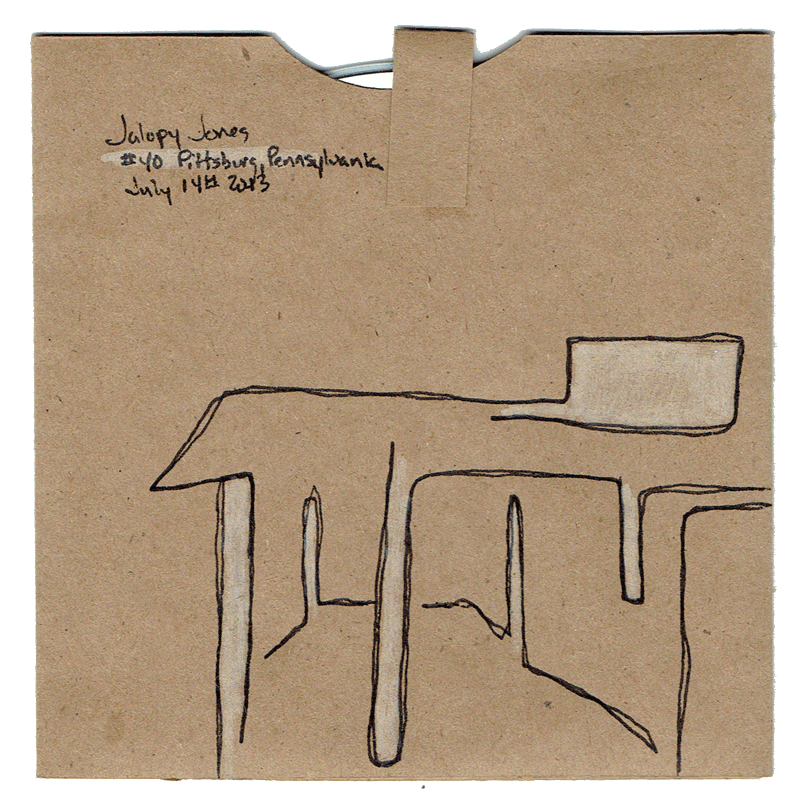 Jalopy Jones
#40 Pittsburg, Pennsylvania
July 14th 2013